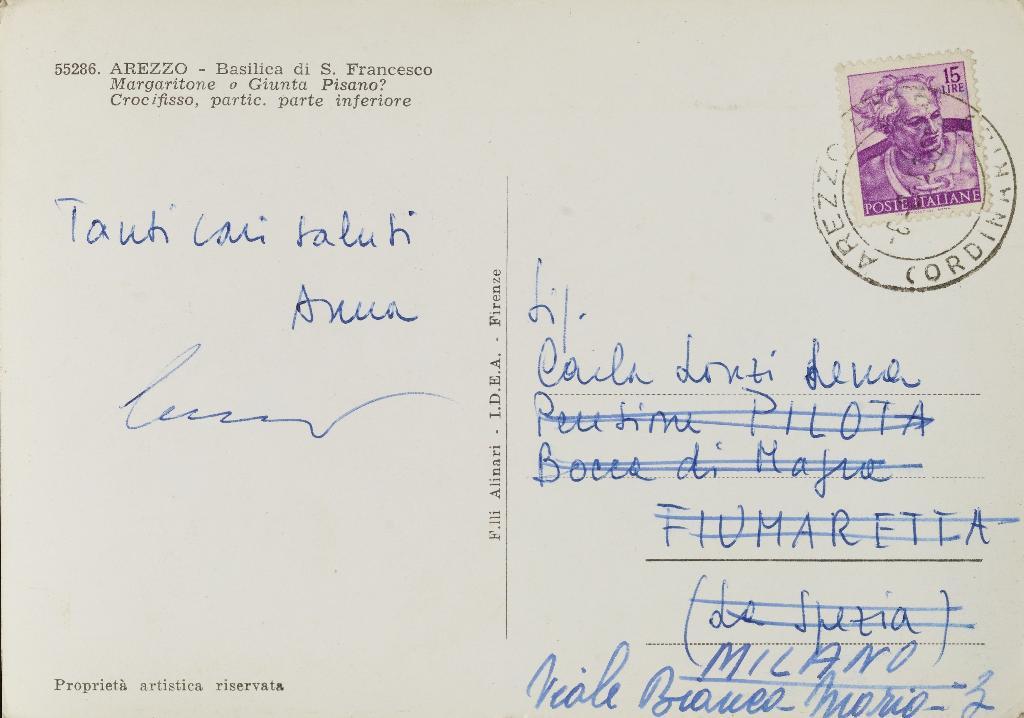 55286. AREZZO - Basilica di S. Francesco
Margaritone o Giunta Pisano?
Crocifisso, partic. parte inferiore
Tanti cari saluti
Anna
F.lli Alinari - I.D.E.A. - Firenze
Proprietà artistica riservata
15
LIRE
POSTE ITALIANE
AREZZO
CORDINARIE
Sig.
Carla Lonzi Lena
Pensione PILOTA
Bocca di Magra
FIUMARETTA
(La Spezia)
MILANO
Viale Bianca Maria - 3